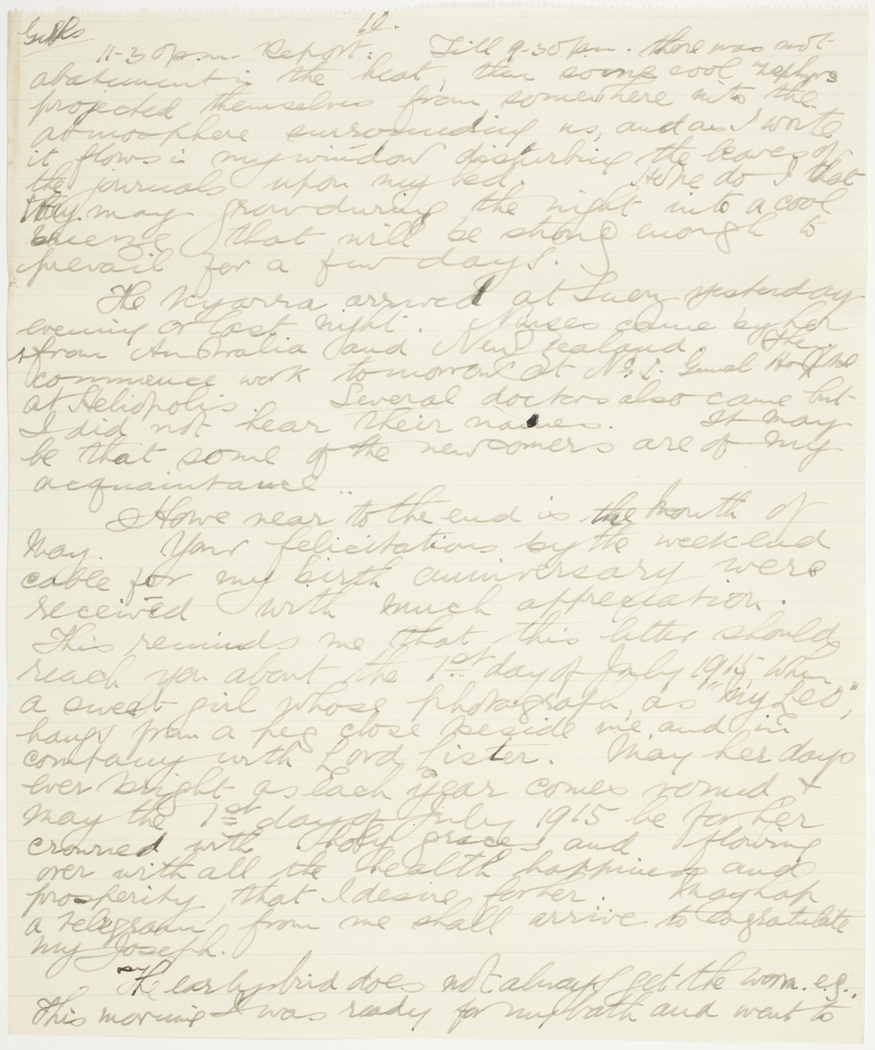 10.
11-30 p.m. Report: Till 9-30 p.m. there was not
abatement in the heat, then some cool zephyrs
projected themselves from somewhere into the
atmosphere surrounding us, and as I write
it flows in my window disturbing the leaves of
the journals upon my bed. Hope do I that
they may grow during the night into a cool
breeze that will be strong enough to
prevail for a few days.
The Kyarra arrived at Suez yesterday
evening or last night. Nurses came by her
from Australia and New Zealand. They
commence work tomorrow at No. 2. General Hospital
at Heliopolis. Several doctors also came but
I did not hear their names. It may
be that some of the newcomers are of my
acquaintance.
Howe near to the end is the month of
May. Your felicitations by the week end
cable for my birth anniversary were
received with much appreciation.
This reminds me that this letter should
reach you about the 1st day of July 1915, when
a sweet girl whose photograph, as "My Leo",
hangs from a peg close beside me, and in
company with Lord Lister. May her days
ever bright as each year comes round &
may the 1st day of July 1915 be for her
crowned with holy graces and flowing
over with all the health happiness and
prosperity, that I desire for her. Mayhap
a telegram from me shall arrive to congratulate
my Joseph.
The early bird does not always get the worm. e.g.
This morning I was ready for my bath and went to